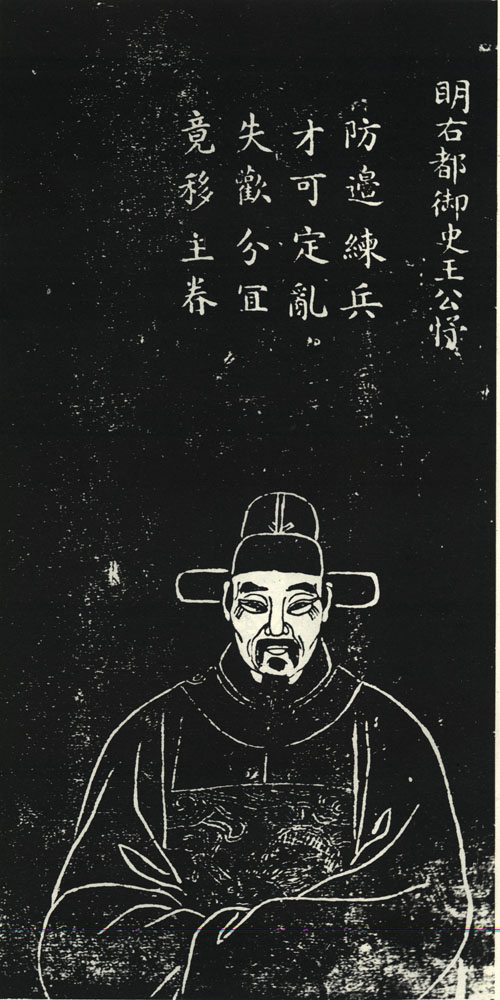 明右都御史王公忬
防邊練兵
才可定亂
失歡分冝
竟移主眷